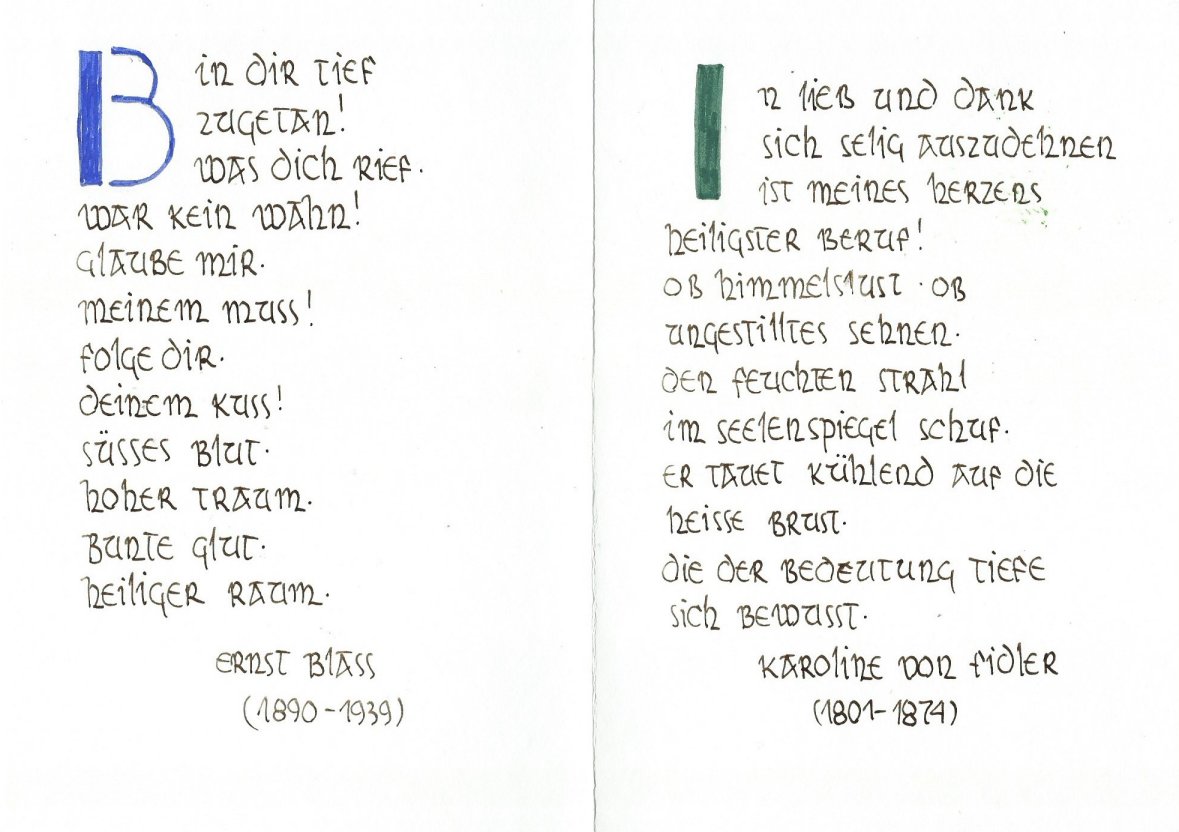 Bin dir tief
zugetan!
was dich rief.
war kein wahn!
glaube mir.
meinem muss!
folge dir.
deinem kuss!
süsses blut.
hoher traum.
bunte glut.
heiliger raum.
ernst blass
(1890-1939)
In lieb und dank
sich selig auszudehnen
ist meines herzens
heiligster beruf!
ob himmelslust · ob
ungestilltes sehnen.
den feuchten strahl
im seelenspiegel schuf.
er tauet kühlend auf die
heisse brust.
die der bedeutung tiefe
sich bewusst.
karoline von fidler
(1801-1874)